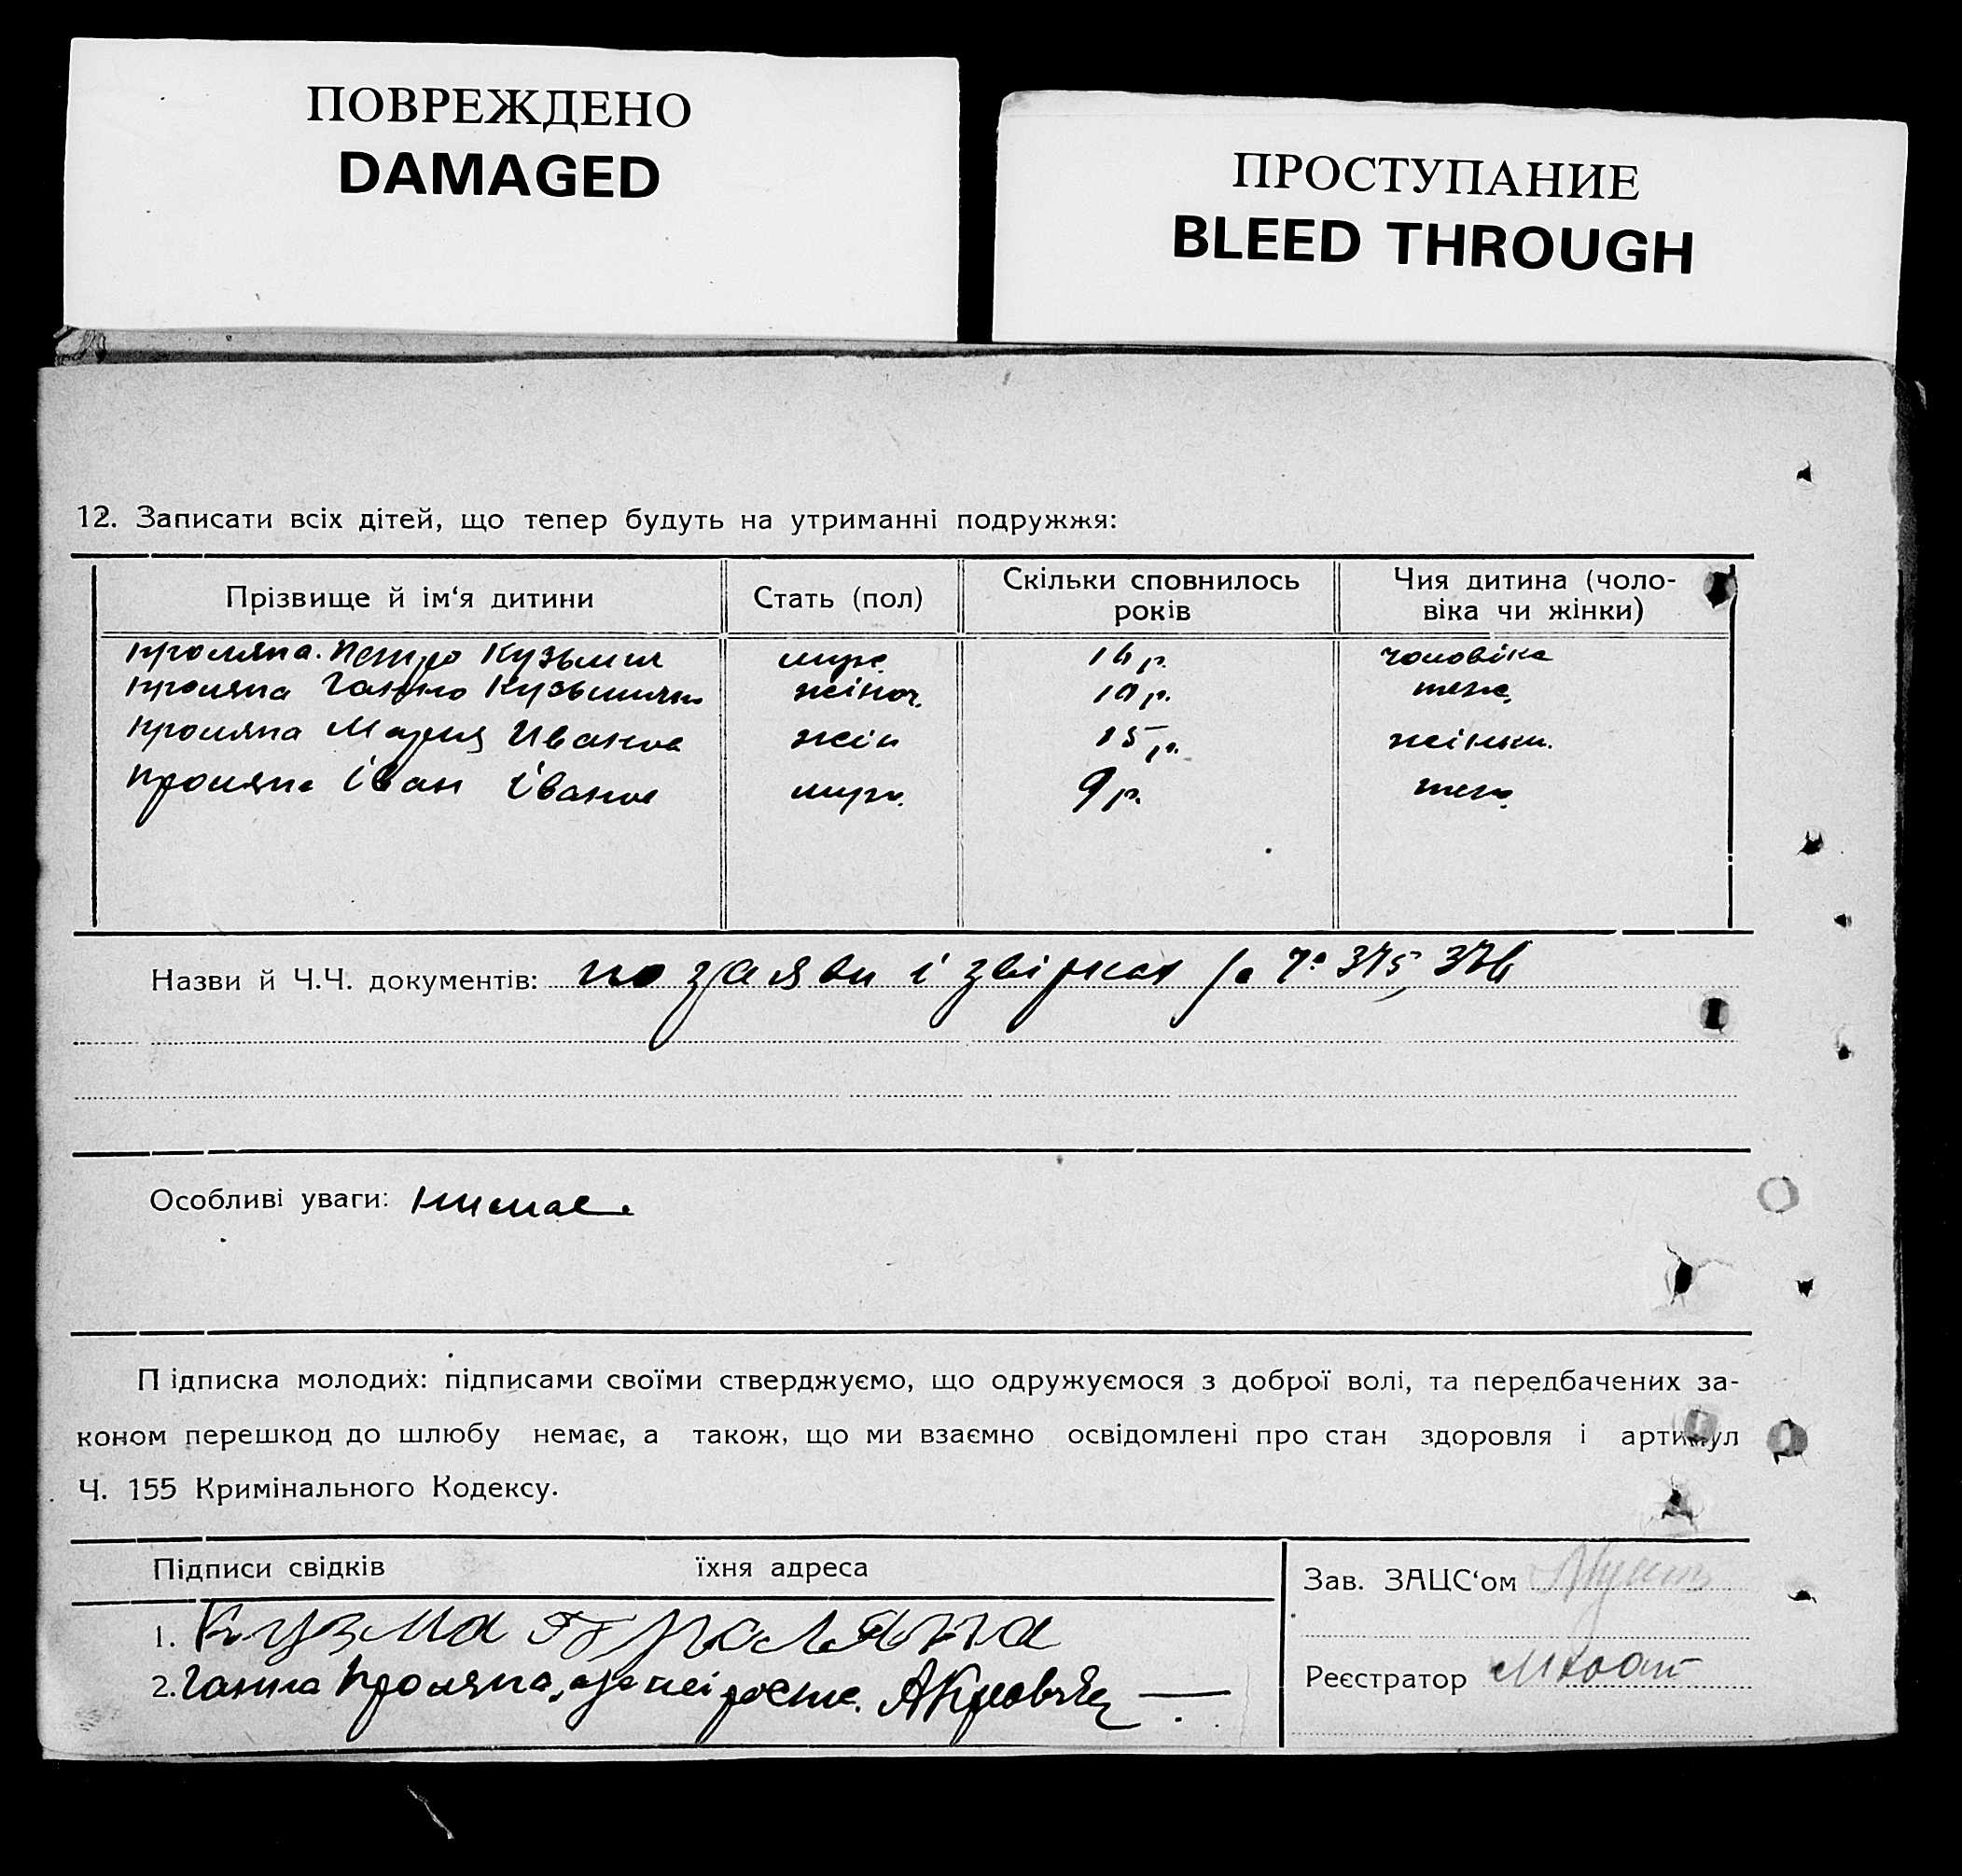 ПОВРЕЖДЕНО
DAMAGED
ПРОСТУПАНИЕ
BLEED THROUGH
12. Записати всіх дітей, що тепер будуть на утриманні подружжя:
Прізвище й ім‘я дитини
Стать (пол)
Скільки сповнилось
років
Чия дитина (чоло-
віка чи жінки)
Проляпа. Петро Кузьмич
муж.
р.
чоловіка
Проляпа
жіноч.
10 р.
теж.
Проляпа Мария Иванов
жін
15 р.
жінки.
Проляпа Іван Іванов
муж.
9 р.
теж.
Назви й Ч.Ч. документів: по заяви і
Особливі уваги: нимае.
Підписка молодих: підписами своїми стверджуємо, що одружуємося з доброї волі, та передбачених за-
коном перешкод до шлюбу немає, а також, що ми взаємно освідомлені про стан здоровля і артикул
Ч. 155 Кримінального Кодексу.
Підписи свідків
їхня адреса
1. Кузма Проляпа
2. Ганна Проляпа,
Зав. ЗАЦС‘ом
Реєстратор